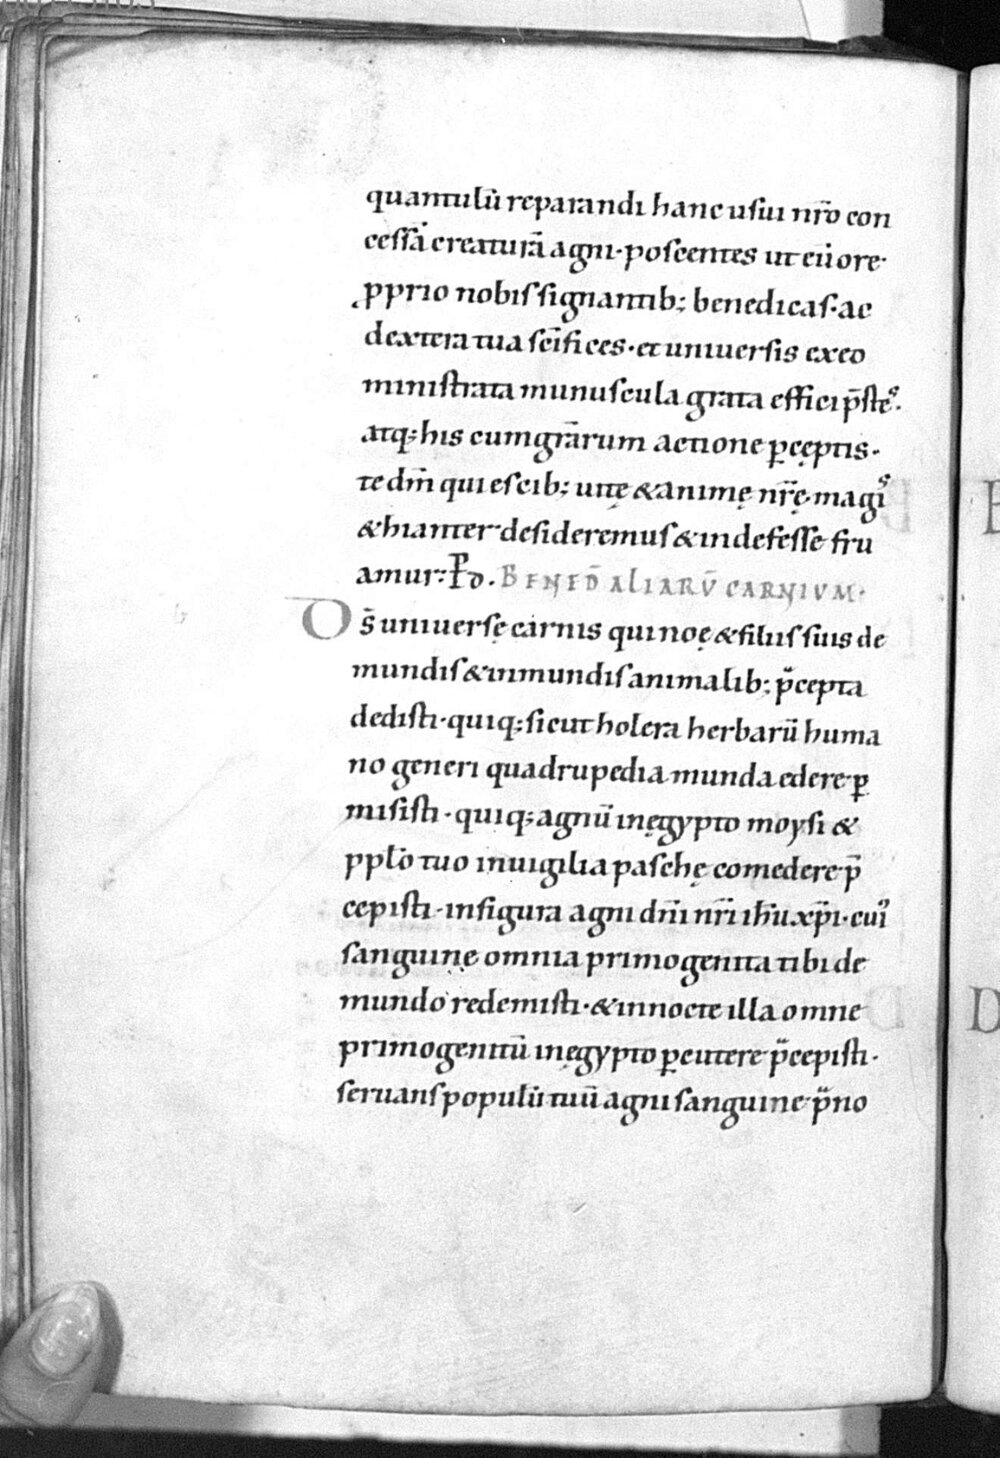 quantulū reparandi hanc usui nr̄o con
cessā creaturā agni· poscentes ut eū ore·
pprio nobis signantib; benedicas· ac
dextera tua sc̄ifices· et universis ex eo
ministrata munuscula grata effici p̄stes·
atq; his cum gr̄arum actione p̄cęptis·
te dm̄ qui es cib; vitę & animę nr̄ę magis
& hianter desideremus & indefesse fru
amur: P̄ d̄. BENED̄ ALIARŪ CARNIUM·
Ds̄ universę carnis qui noę & filiis suis de
mundis & inmundis animalib; p̄cepta
dedisti· quiq; sicut holera herbarū huma
no generi quadrupedia munda edere p̱
misisti· quiq; agnū in ęgypto moysi &
pplo̅ tuo in vigilia paschę comedere p̄
cepisti· in figura agni dn̄i nr̄i ih̄u xp̄i· cui᷒
sanguinę omnia primogenita tibi de
mundo redemisti· & in nocte illa omne
primogenitū in ęgypto p̱cutere p̄cepisti·
servans populū tuū agni sanguine p̄no